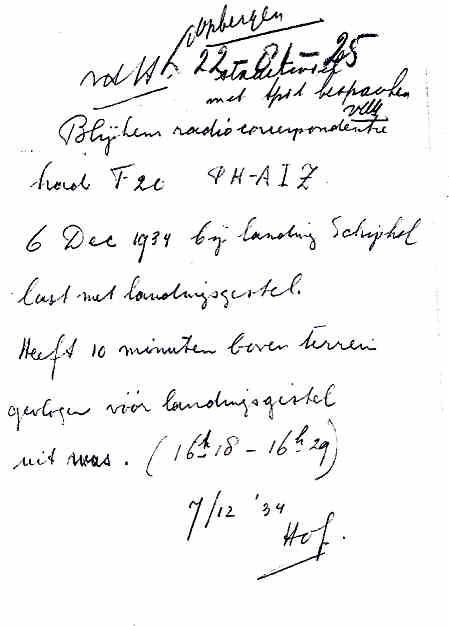 Opbergen
vdH. 22 - 01 - 25
met Spit besproken
Blijkens radiocorrespondentie
had F20 PH-AIZ
6 Dec 1934 bij landing Schiphol
last met landingsgestel.
Heeft 10 minuten boven terrein
gevlogen vóór landingsgestel
uit was. (16h18 - 16h29)
7/12 '34
Hof.